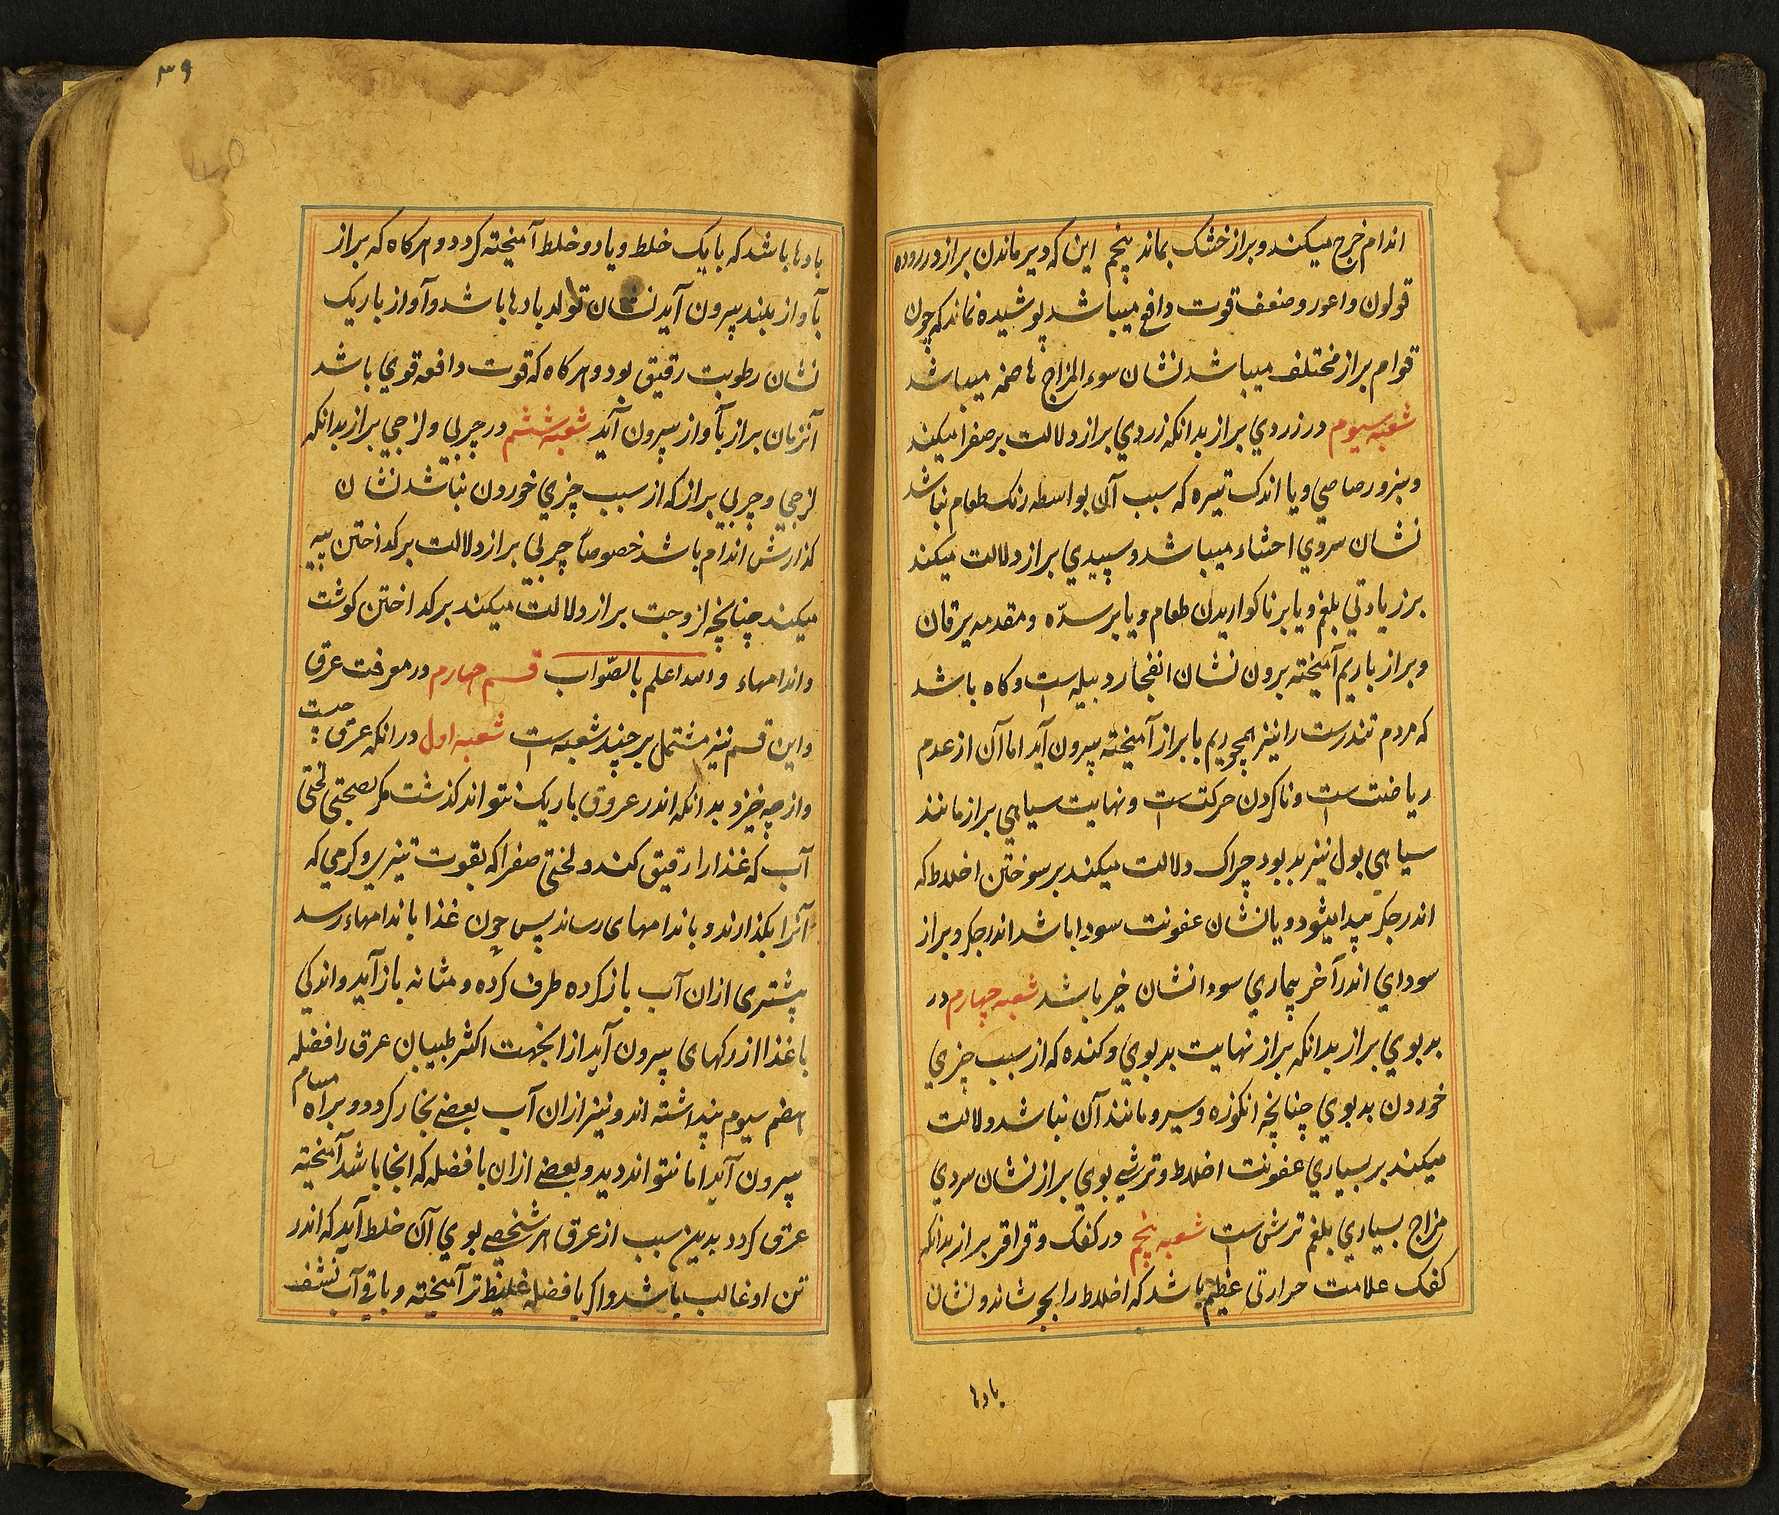 اندام خرج میکند و براز خشک بماند پنجم این که دیر ماندن براز در روده
قولون و اعور و ضعف قوت دافع میباشد پوشیده نماند که چون
قوام براز مختلف میباشد نشان سوء المزاج هاضمه میباشد
شعبه سیوم در زردي براز بدانکه زردي براز دلالت بر صفرا میکند
و سبز و رصاصي و یا اندک تیره که سبب آن بواسطه رنک طعام نباشد
نشان سردي احشاء میباشد و سپیدي براز دلالت میکند
بر زیادتي بلغم و یا بر ناکواریدن طعام و یا بر سدّه و مقدمه یرقان
و براز باریم آمیخته برون نشان انفجار دبیله است و کاه باشد
که مردم تندرست را نیز همچو ریم با براز آمیخته بیرون آید اما آن از عدم
ریاضت است و ناکردن حرکت است و نهایت سیاهي براز مانند
سیاهي بول نیز بد بود چراک دلالت میکند بر سوختن اخلاط که
اندر جکر پیدا میشود و یا نشان عفونت سودا باشد اندر جکر و براز
سوداي اندر آخر بیماري سودا نشان خیر باشد شعبه چهارم در
بدبوي براز بدانکه براز نهایت بدبوي و کنده که از سبب چیزي
خوردن بدبوي چنانچه انکوزه و سیر و مانند آن نباشد دلالت
میکند بر بسیاري عفونت اخلاط و ترشي بوي براز نشان سردي
مزاج بسیاري بلغم ترش است شعبه پنجم در کفک و قراقر براز بدانکه
کفک علامت حرارتي عظیم باشد که اخلاط را بجوشاند و نشان
بادها
۳۹
40
بادها باشد که با یک خلط و یا دو خلط آمیخته کردد و هر کاه که براز
بآواز بلند بیرون آید نشان تولد بادها باشد و آواز باریک
نشان رطوبت رقیق بود و هر کاه که قوت دافعه قوي باشد
آنزمان براز بآواز بیرون آید شعبه ششم در چربي و لزجي براز بدانکه
لزجي و چربي براز که از سبب چیزي خوردن نباشد نشان
کدازش اندام باشد خصوصاً چربي براز دلالت بر کداختن پیه
میکند چنانچه لزوجت براز دلالت میکند بر کداختن کوشت
و اندامهاء والله اعلم بالصّواب قسم چهارم در معرفت عرق
و این قسم نیز مشتمل بر چند شعبه است شعبه اول در انکه عرق چیست
و از چه خیزد بدانکه اندر عروق باریک نتواند کذشت مکر بصحبتي لختي
آب که غذا را رقیق کند و لختي صفرا که بقوت تیزي و کرمي که
آنرا بکذارند و باندامهاي رساند پس چون غذا باندامهاء رسد
بیشتري ازان آب باز کرده طرف کرده و مثانه باز آید و اندکي
با غذا از رکهاي بیرون آید ازانجهت اکثر طبیبان عرق را فضله
هضم سیوم پنداشته اند و نیز ازان آب بعضي بخار کردد و براه مسام
بیرون آید اما نتوانددید و بعضي ازان با فضله که انجا باشد آمیخته
عرق کردد بدین سبب از عرق هر شخصي بوي آن خلط آید که اندر
تن او غالب باشد و اکر با فضله غلیظ تر آمیخته و باقي آب نشف